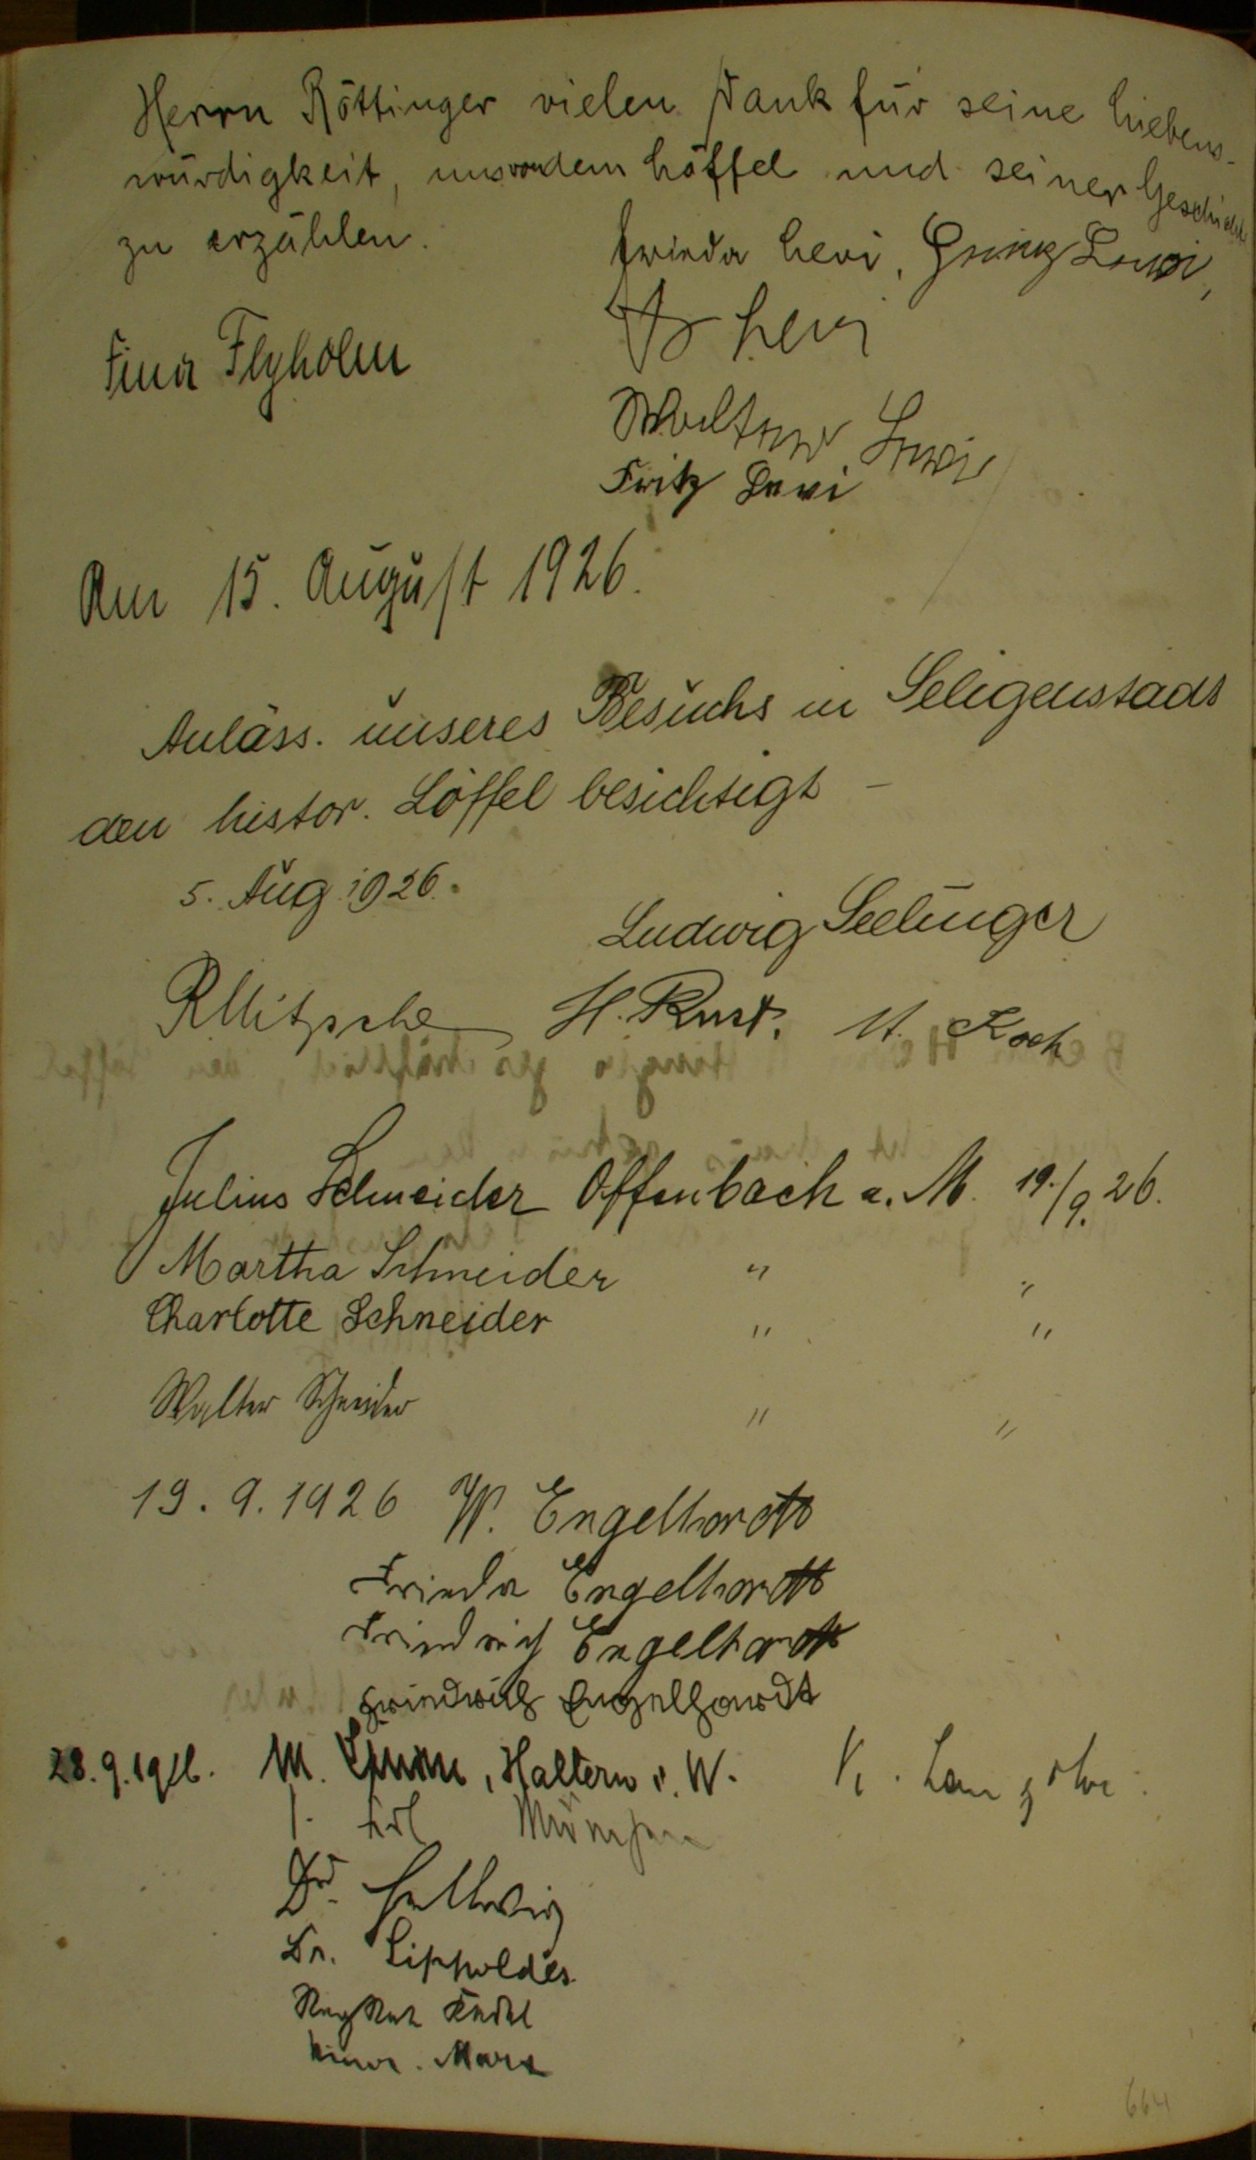 Herrn Röttinger vielen Dank für seine Liebens-
würdigkeit, uns von dem Löffel und seiner Geschichte
zu erzählen.
Frieda Levi, Levi,
Levi
Fina Flyholm
Walter Levi
Fritz Levi
Am 15. August 1926.
Anläss. unseres Besuchs in Seligenstadt
den histor. Löffel besichtigt –
5. Aug. 1926.
Ludwig Seelinger
RNitzsche H. Rust. Koch
Julius Schneider Offenbach a. M. 19./9. 26.
Martha Schneider " "
Charlotte Schneider " "
Walter Schneider " "
19. 9. 1926 W. Engelhardt
Frieda Engelhardt
Friedrich Engelhardt
Friedrich Engelhardt
28. 9. 1926. M. Haltern i. W.
München
Dr. Hellwig
Dr. Lippoldes
Marx
664